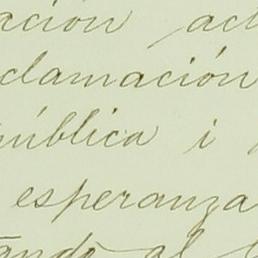 ación ac
clamación
ública i
esperanza
tando al